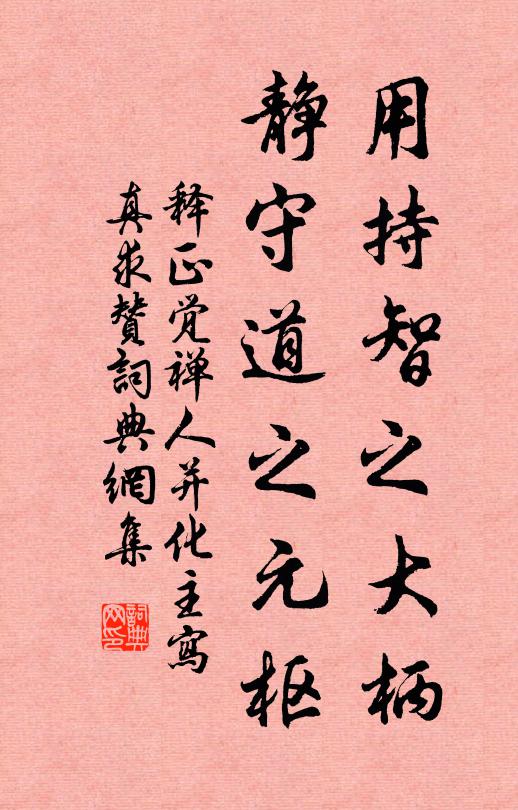 用持智之大柄
静守道之元枢
释正觉禅人并化主寫
真求赞詞典網集
詞典
网印